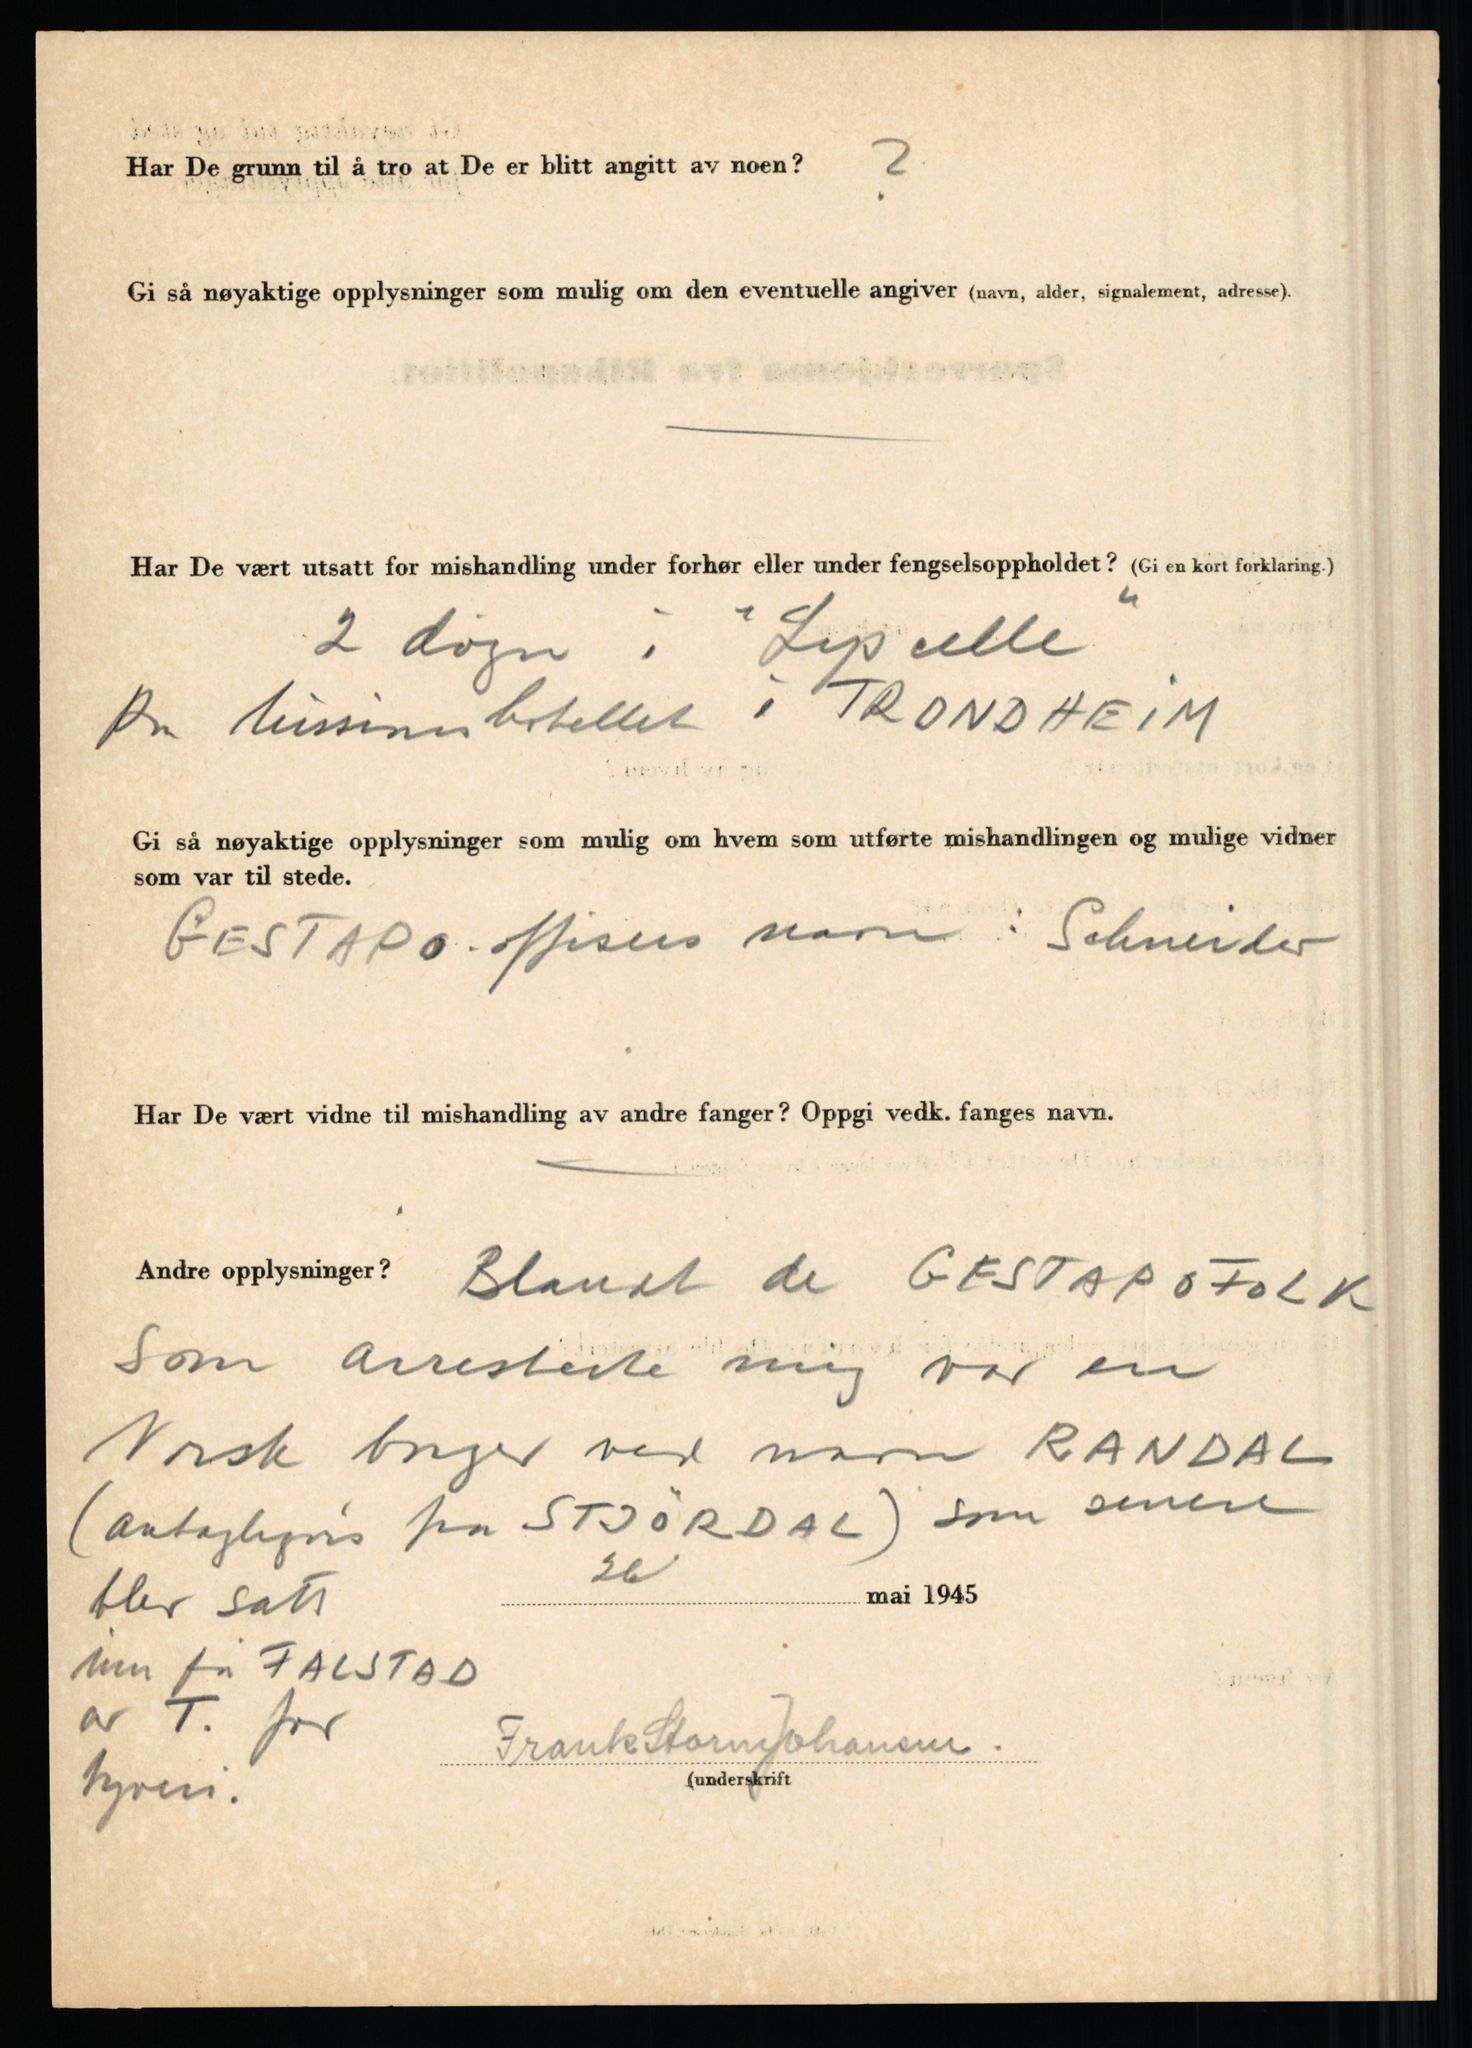 Har De grunn til å tro at De er blitt angitt av noen? ?
Gi så nøyaktige opplysninger som mulig om den eventuelle angiver (navn, alder, signalement, adresse).
Har De vært utsatt for mishandling under forhør eller under fengselsoppholdet? (Gi en kort forklaring.)
2 døgn i "Lyscelle"
på Missionshotellet i TRONDHEIM
Gi så nøyaktige opplysninger som mulig om hvem som utførte mishandlingen og mulige vidner
som var til stede.
GESTAPO-offisers navn: Schneider
Har De vært vidne til mishandling av andre fanger? Oppgi vedk. fanges navn.
Andre opplysninger? Blandt de GESTAPOFOLK
som arresterte mig var en
Norsk borger ved navn RANDAL
(antagligvis fra STJÖRDAL) som senere
blev satt
26 mai 1945
inn på FALSTAD
av T. for
tyveri.
Frank Storm Johansen.
(underskrift